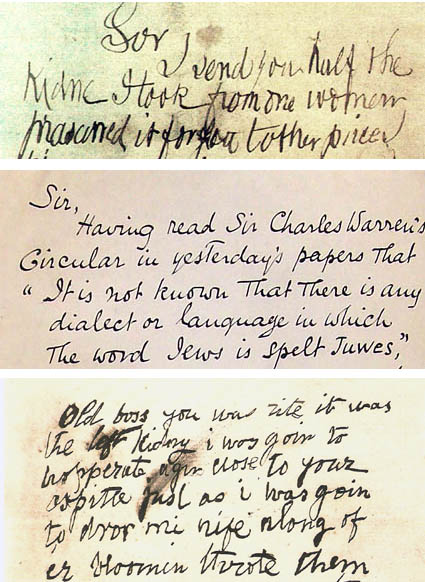 Sor
I send you half the
Kidne I took from one women
prasarved it for you tother piece
Sir,
Having read Sir Charles Warren's
Circular in yesterday's papers that
“It is not known that there is any
dialect or language in which
the word Jews is spelt Juwes,”
Old boss you was rite it was
the left kidny i was goin to
hopperate agin close to your
ospitle just as i was goin
to dror mi nife along of
er bloomin throte them